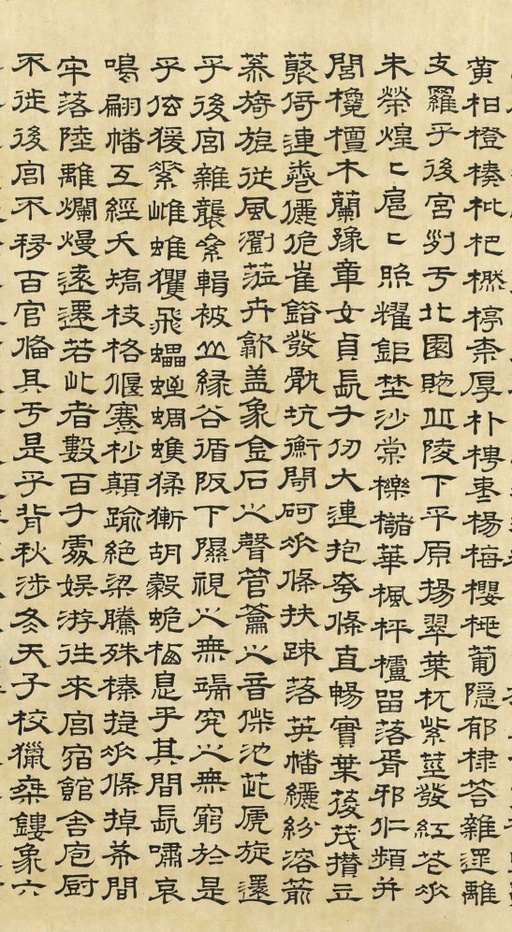 黄柑橙楱枇杷橪楟柰厚朴梬棗楊梅櫻桃葡隱郁棣荅雜遝離
支羅乎後宮列乎北園貤丘陵下平原揚翠葉杌紫莖發紅花垂
朱榮煌〻扈〻照耀鉅野沙棠櫟櫧華楓枰櫨留落胥邪仁頻并
閭欃檀木蘭豫章女貞長千仞大連抱夸條直暢實葉葰茂攢立
藂倚連卷欐佹崔錯發骫坑衡閜砢垂條扶疎落英幡纚紛溶箾
蔘猗旎從風瀏莅卉歙蓋象金石之聲管籥之音偨池茈虒旋還
乎後宮雜襲絫輯被山緣谷循阪下隰視之無端究之無窮於是
乎玄猨素雌蜼玃飛蠝蛭蜩蠼猱獑胡豰蛫棲息乎其間長嘯哀
鳴翩幡互經夭矯枝格偃蹇杪顛踰絶梁騰殊榛捷垂條掉希間
牢落陸離爛熳遠遷若此者數百千處娛游往來宮宿館舍庖厨
不徙後宮不移百官備具於是乎背秋涉冬天子校獵乘鏤象六